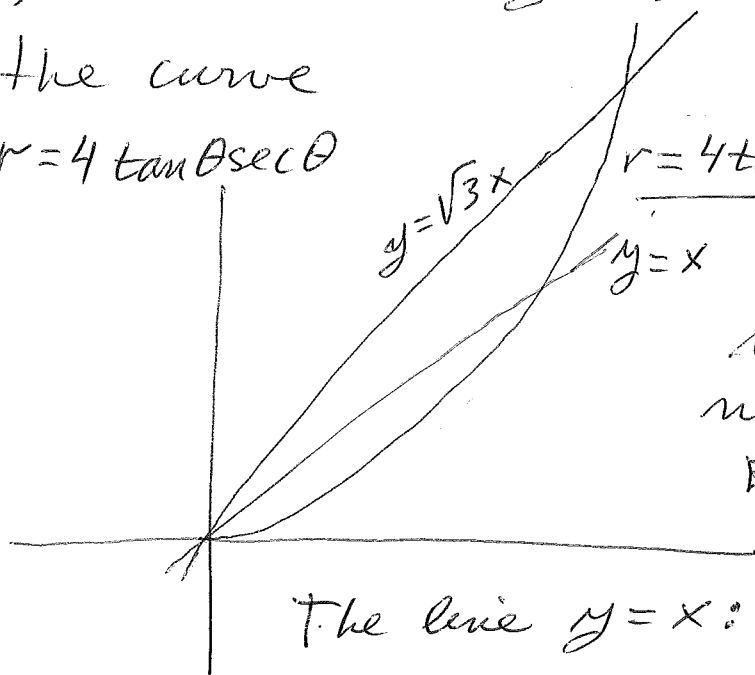 the curve
r = 4 tanθsecθ
y = √3 x
r = 4 t
y = x
The line y = x :